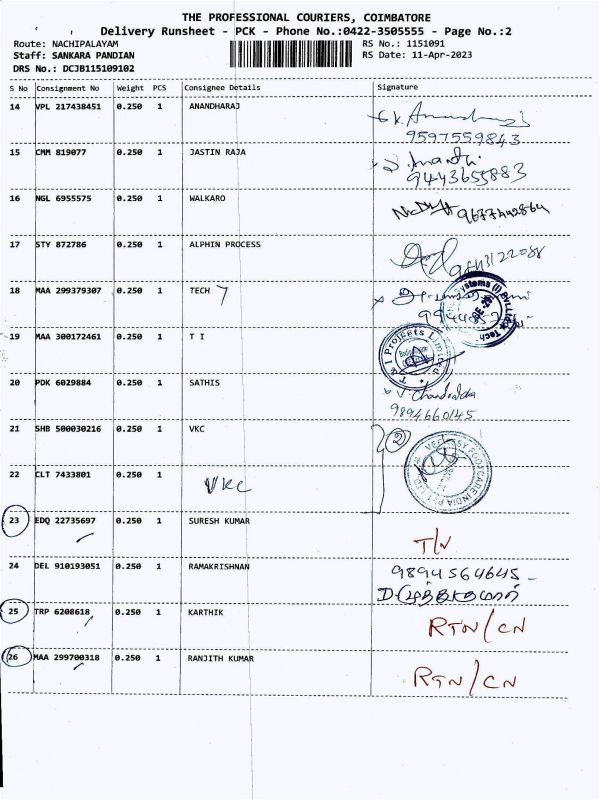 THE PROFESSIONAL COURIERS, COIMBATORE
Delivery Runsheet - PCK - Phone No.:0422-3505555 - Page No.:2
Route: NACHIPALAYAM RS No.: 1151091
Staff: SANKARA PANDIAN RS Date: 11-Apr-2023
DRS No.: DCJB115109102
S No Consignment No Weight PCS Consignee Details Signature
14 VPL 217438451 0.250 1 ANANDHARAJ
9597559843
15 CMM 819077 0.250 1 JASTIN RAJA
9443655883
16 NGL 6955575 0.250 1 WALKARO
9677442864
17 STY 872786 0.250 1 ALPHIN PROCESS
18 MAA 299379307 0.250 1 TECH 7
19 MAA 300172461 0.250 1 T I
T & I Projects Limited
20 PDK 6029884 0.250 1 SATHIS
V. Chandralekha
9894660145
21 SHB 500030216 0.250 1 VKC 2
22 CLT 7433801 0.250 1 VKC
23 EDQ 22735697 0.250 1 SURESH KUMAR
T/N
24 DEL 910193051 0.250 1 RAMAKRISHNAN 9894564645
25 TRP 6208618 0.250 1 KARTHIK
RTN/CN
26 MAA 299700318 0.250 1 RANJITH KUMAR
RTN/CN